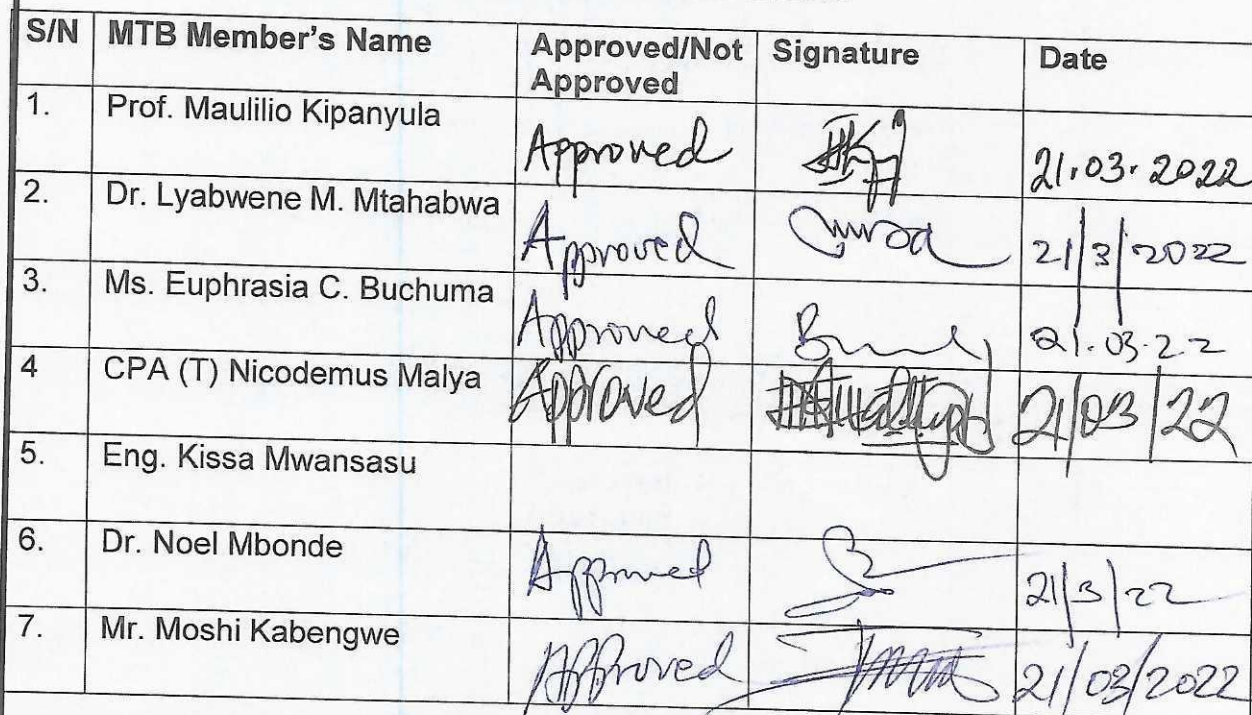 S/N MTB Member's Name Approved/Not Approved Signature Date
1. Prof. Maulilio Kipanyula Approved 21.03.2022
2. Dr. Lyabwene M. Mtahabwa Approved 21/3/2022
3. Ms. Euphrasia C. Buchuma Approved 21.03.22
4 CPA (T) Nicodemus Malya Approved 21/03/22
5. Eng. Kissa Mwansasu
6. Dr. Noel Mbonde Approved 21/3/22
7. Mr. Moshi Kabengwe Approved 21/03/2022